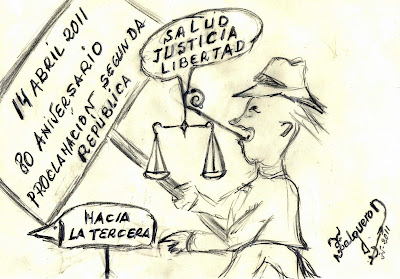 14 ABRIL 2011
80 ANIVERSARIO
PROCLAMACIÓN SEGUNDA
REPÚBLICA
SALUD
JUSTICIA
LIBERTAD
HACIA
LA TERCERA